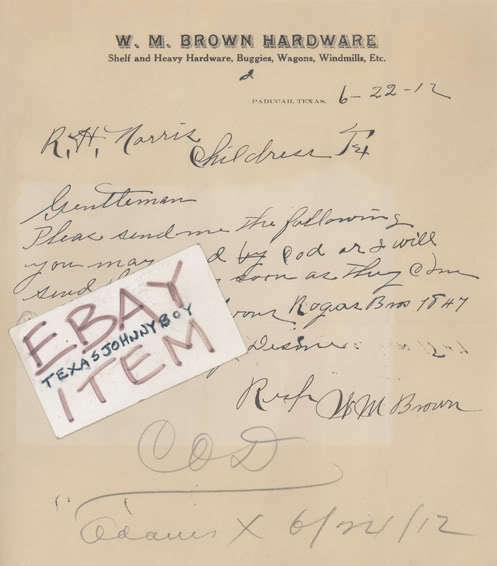 W. M. BROWN HARDWARE
Shelf and Heavy Hardware, Buggies, Wagons, Windmills, Etc.
PADUCAH, TEXAS, 6-22-12
R, H, Norris
Childress Tex
Gentleman
Pleas send me the following
you may by Cod or I will
send soon as they Come
Rogas Bros 1847
Desine
Resp W M Brown
EBAY
TEXASJOHNNYBOY
ITEM
COD
Adams X 6/24/12